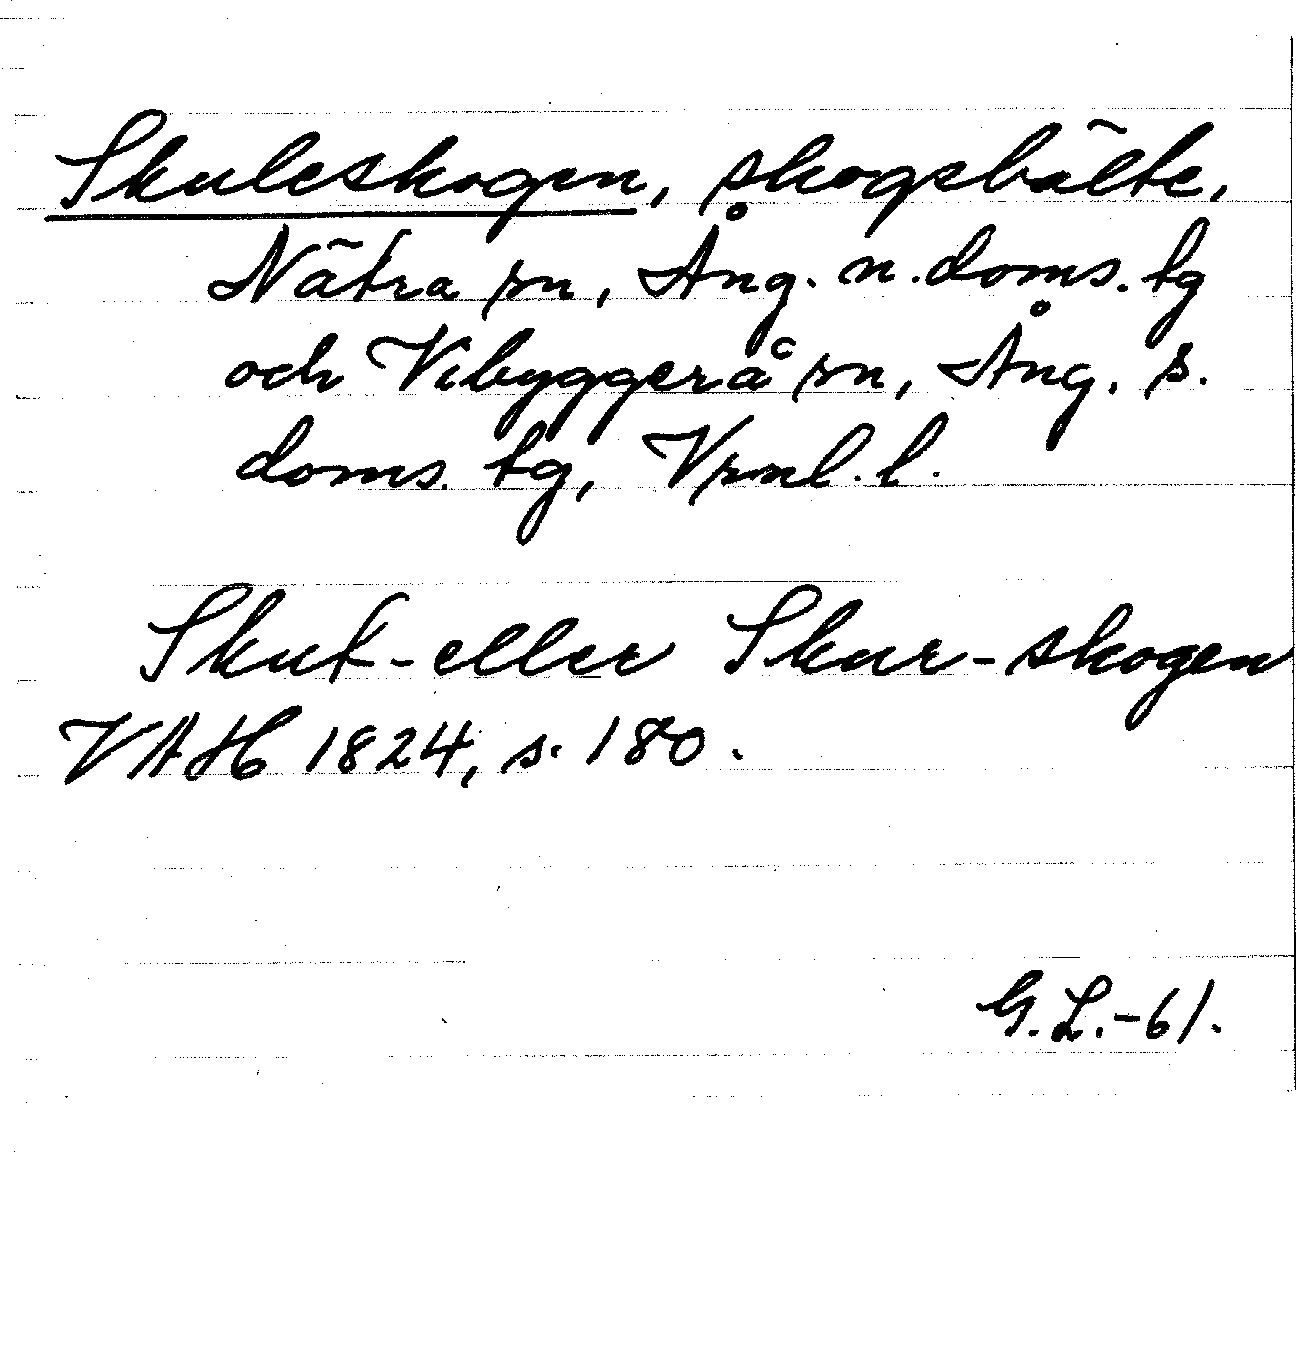 Skuleskogen, skogsbälte,
Nätra sn, Ång. n. doms. tg
och Vibyggerå sn, Ång. s.
doms. tg, Vrnl. l.
Skut- eller Skur-skogen
VAH 1824, s. 180.
G.L.-61.